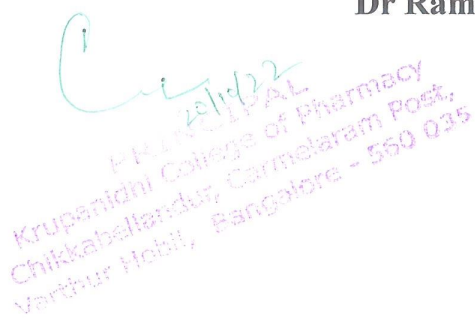 Dr Ram
20/10/22
PRINCIPAL
Krupanidhi College of Pharmacy
Chikkabellandur, Carmelaram Post,
Varthur Hobli, Bangalore - 560 035